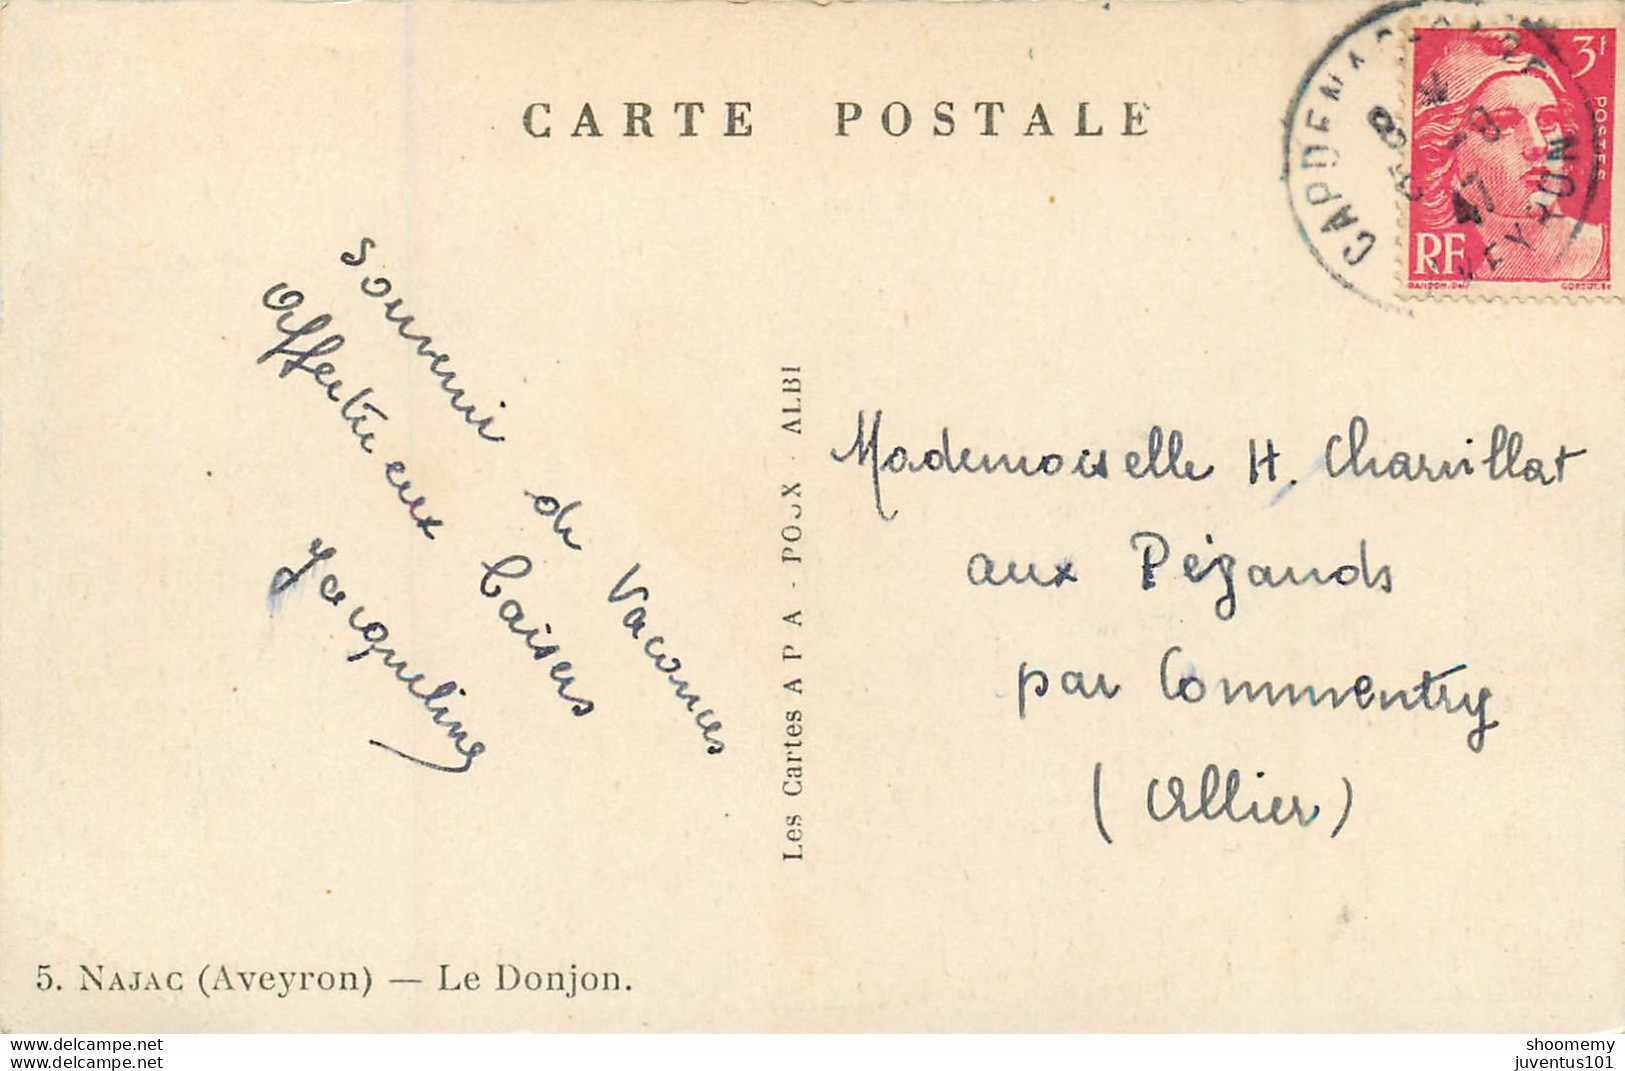 CARTE POSTALE
3F
POSTES
RF
GANDON.DEL
CORTOT.SC
CAPDENAC
8
-9
47
AVEYRON
souvenir de vacances
Affectueux baisers
Jacqueline
Les Cartes A P A - POUX - ALBI
Mademoiselle H. Charvillat
aux Pégauds
par Commentry
(Allier)
5. NAJAC (Aveyron) — Le Donjon.
www.delcampe.net
www.delcampe.net
shoomemy
juventus101